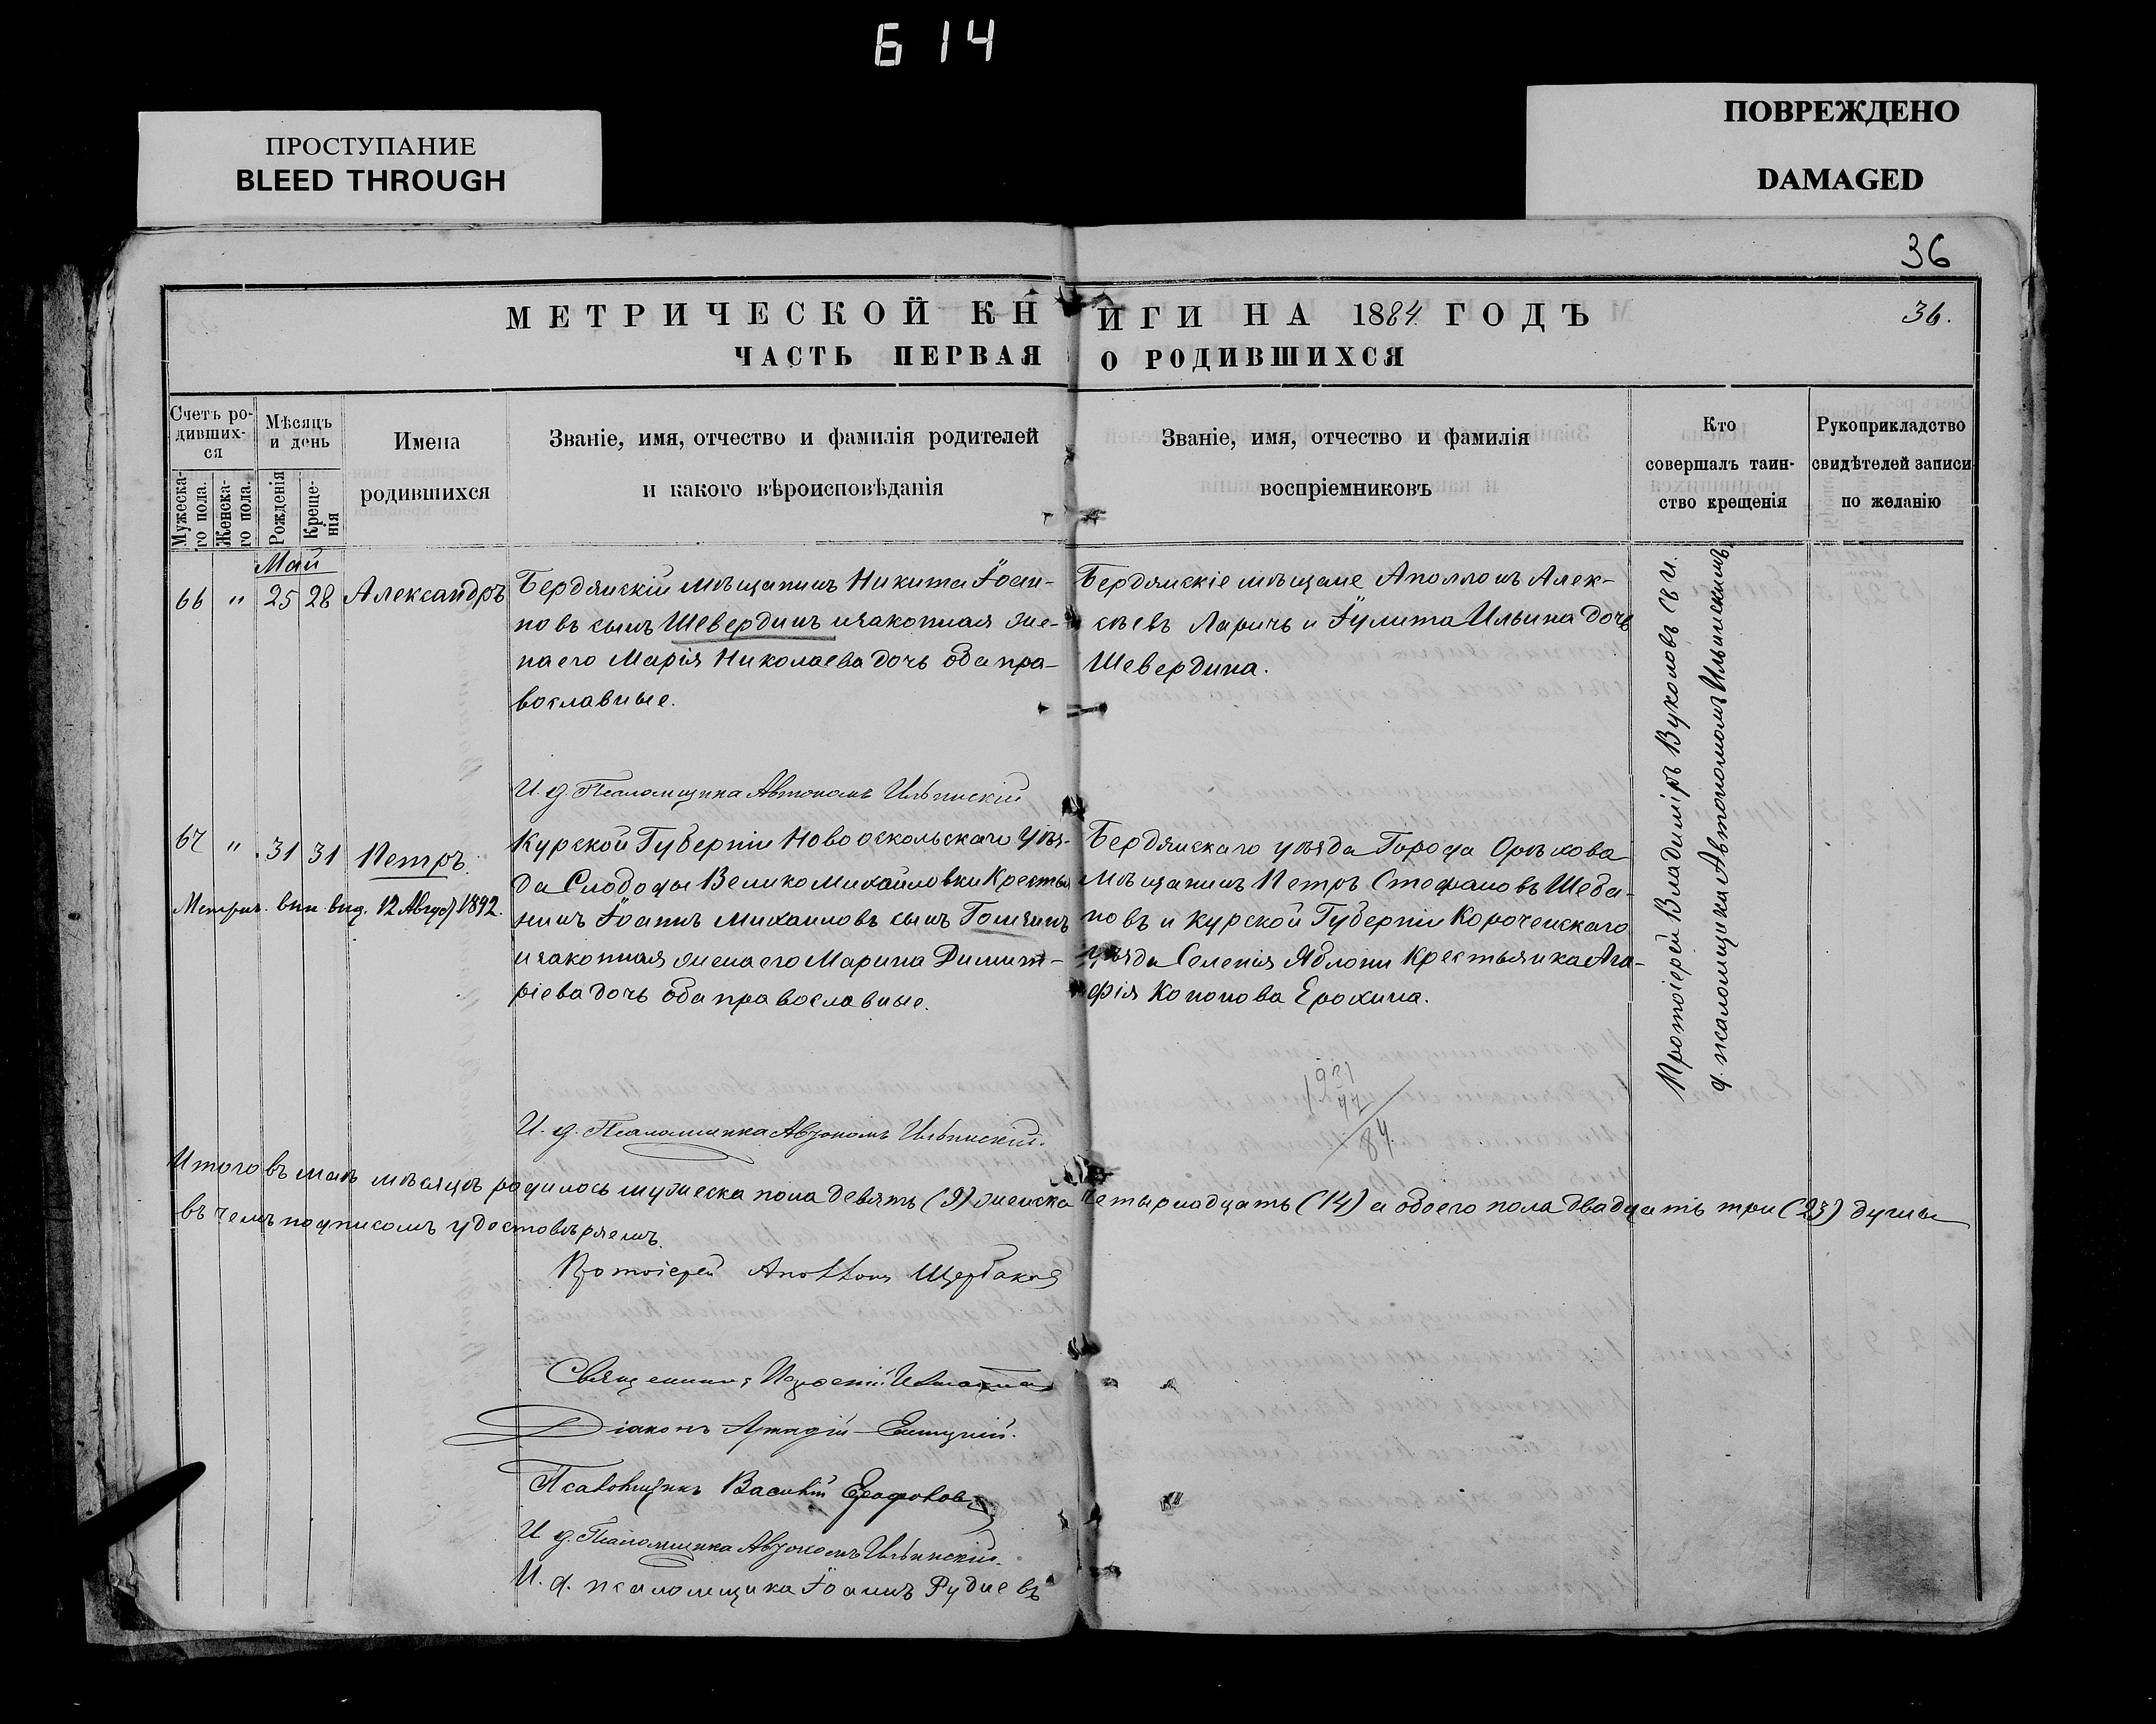 Б 14
ПРОСТУПАНИЕ
BLEED THROUGH
ПОВРЕЖДЕНО
DAMAGED
36
МЕТРИЧЕСКОЙ КНИГИ НА 1884 ГОДЪ
36.
ЧАСТЬ ПЕРВАЯ О РОДИВШИХСЯ
Счетъ ро-
дивших-
ся
Мужеска-
го пола.
Женска-
го пола.
Мѣсяцъ
и день
Рожденія
Креще-
нія
Имена
родившихся
Званіе, имя, отчество и фамилія родителей
и какого вѣроисповѣданія
Званіе, имя, отчество и фамилія
воспріемниковъ
Кто
совершалъ таин-
ство крещенія
Рукоприкладство
свидѣтелей записи
по желанію
Май
66 " 25 28 Александръ
Бердянскій мѣщанинъ Никита Іоан-
новъ сынъ Шевердинъ и законная же-
на его Марія Николаева дочь оба пра-
вославные.
И. д. Псаломщика Автономъ Ильинскій
Бердянскіе мѣщане Аполлонъ Алек-
сѣевъ Ларичъ и Іулита Ильина дочь
Шевердина.
67 " 31 31 Петръ.
Метрич. вып. выд. 12 Август 1892.
Курской Губерніи Новооскольскаго уѣз-
да Слободы Великомихайловки Крестья
нинъ Іоаннъ Михаиловъ сынъ
и законная жена его Марина Димит-
ріева дочь оба православные.
И. д. Псаломщика Автономъ Ильинскій.
Бердянскаго уѣзда Города Орѣхова
Мѣщанинъ Петръ Стефановъ Шеба-
новъ и Курской Губерніи Корочанскаго
уѣзда Селенія Яблони Крестьянка Ага-
фія Кононова Ерохина.
Протоіерей Владиміръ Вуколовъ съ и.
д. псаломщика Автономомъ Ильинскимъ
84
Итого въ маѣ мѣсяцѣ родилось мужеска пола девять (9) женска четырнадцать (14) а обоего пола двадцать три (23) души
въ чемъ подписомъ удостовѣряемъ.
Протоіерей Аполлонъ Щербаковъ
Священникъ
Діаконъ Аркадій
Псаломщикъ Василій
И. д. Псаломщика Автономъ Ильинскій.
И. д. псаломщика Іоаннъ Рудневъ